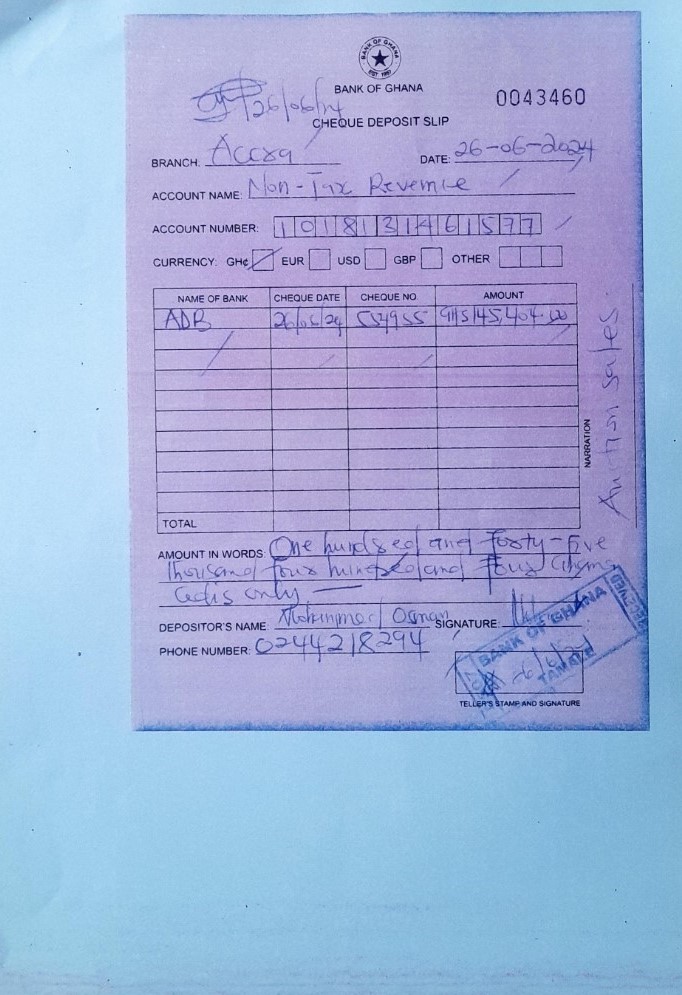 BANK OF GHANA
EST 1957
BANK OF GHANA
0043460
26/06/24
CHEQUE DEPOSIT SLIP
BRANCH: Accra
DATE: 26-06-2024
ACCOUNT NAME: Non-Tax Revenue
ACCOUNT NUMBER: 1018131461577
CURRENCY: GH¢ EUR USD GBP OTHER
NAME OF BANK CHEQUE DATE CHEQUE NO. AMOUNT
ADB 26/06/24 554955 145,404.00
NARRATION
Auction sales.
TOTAL
AMOUNT IN WORDS: One hundred and forty-five
thousand four hundred and four Ghana
Cedis only
DEPOSITOR'S NAME: Osman SIGNATURE:
PHONE NUMBER: 0244218294
BANK OF GHANA
RECEIVED
26/6/24
TAMALE
TELLER'S STAMP AND SIGNATURE